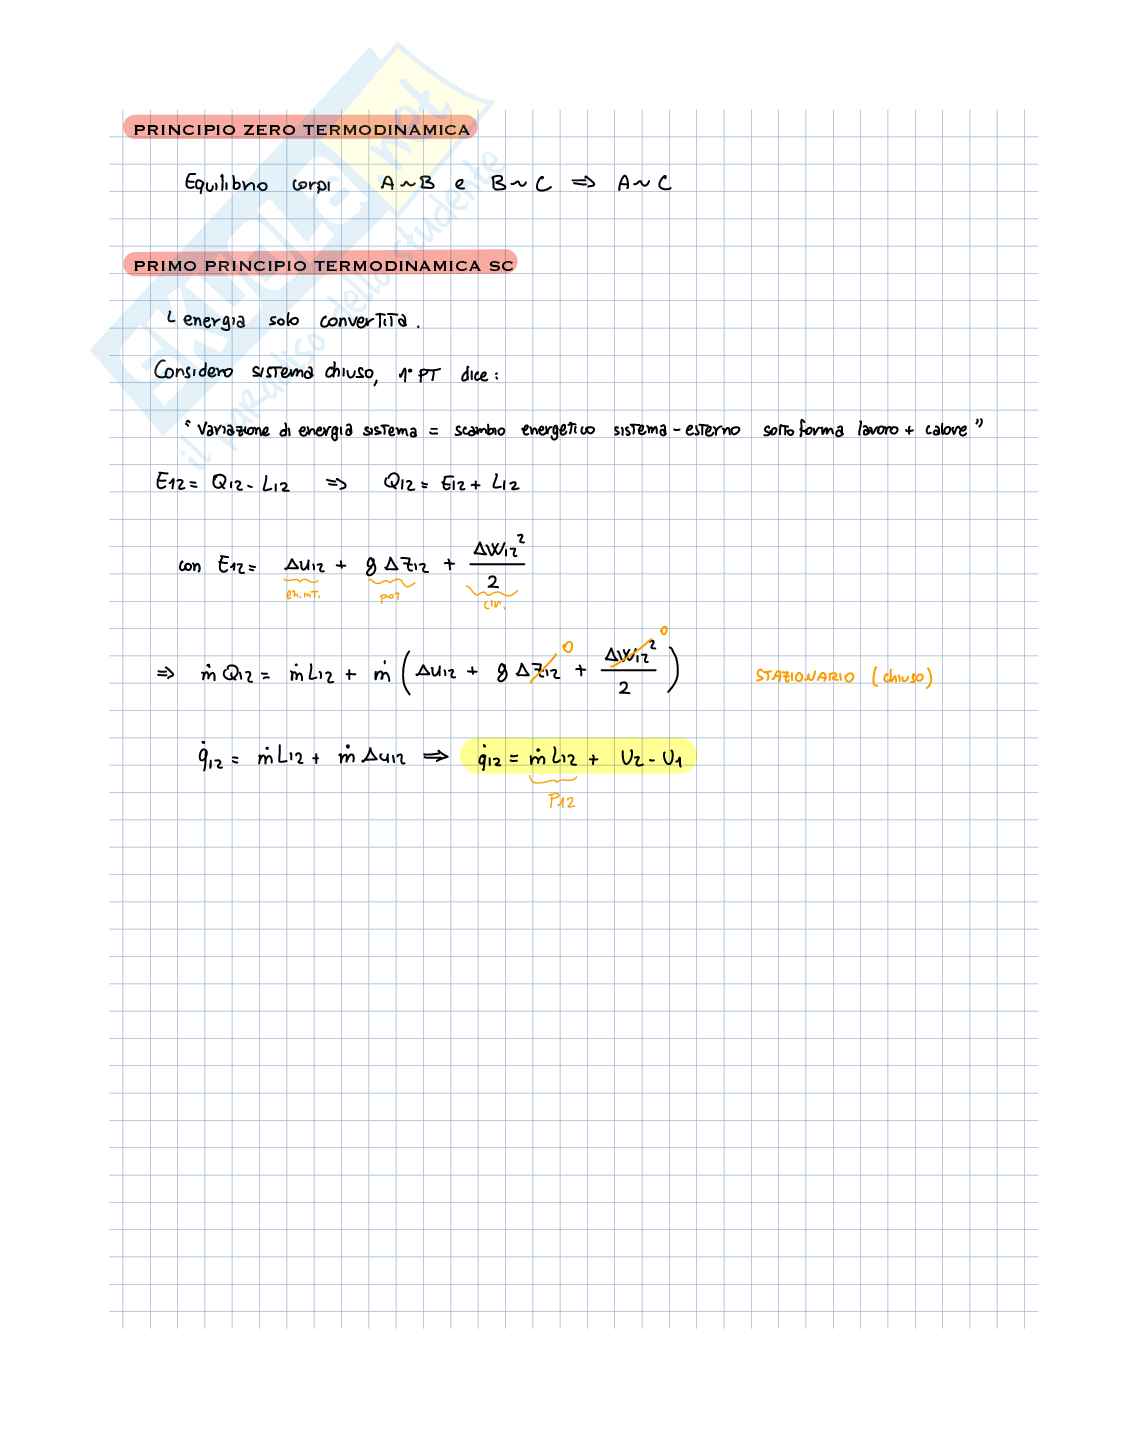 PRINCIPIO ZERO TERMODINAMICA
Equilibrio corpi A ~ B e B ~ C ⇒ A ~ C
PRIMO PRINCIPIO TERMODINAMICA SC
L energia solo convertita.
Considero sistema chiuso, 1° PT dice:
"Variazione di energia sistema = scambio energetico sistema - esterno sotto forma lavoro + calore"
E12 = Q12 - L12 ⇒ Q12 = E12 + L12
con E12 = Δu12 + g Δz12 + ΔW12² / 2
en.int. pot cin.
⇒ ṁ Q12 = ṁ L12 + ṁ (Δu12 + g Δz12 + ΔW12² / 2) 0 0 STAZIONARIO (chiuso)
q̇12 = ṁ L12 + ṁ Δu12 ⇒ q̇12 = ṁ L12 + U2 - U1
P12
skuola.net
il paradiso dello studente